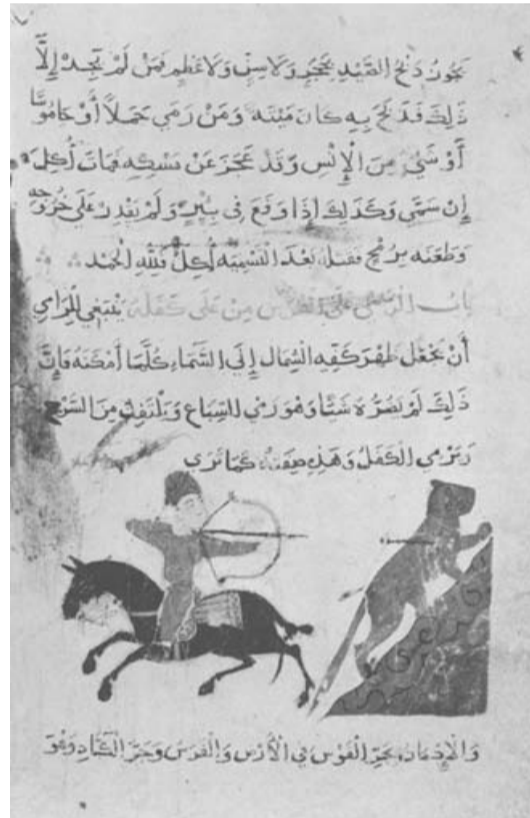 يجوز ذبح الصيد بحجر ولا سن ولا عظم فمن لم يجد إلا
ذلك فذبح به كان ميتة ومن رمي جملاً أو جاموسًا
أو شيء من الإنس وقد عجز عن مسكه فمات أكل
إن سمي وكذلك إذا وقع في بير ولم يقدر علي خروجه
وطعنه برمح فقتله بعد التسمية أكل ولله الحمد
باب الرمي علي الفرس من علي كفله ينبغي للرامي
أن يجعل ظهر كفه الشمال إلي السماء كلما أمكنه فإن
ذلك لم يضره شتا وهو رمي السباع ويلتفت من السرج
ويرمي الكفل وهذه صفته كما تري
والإدمان بجر القوس في الأرض والفرس وجر الكباد وهو